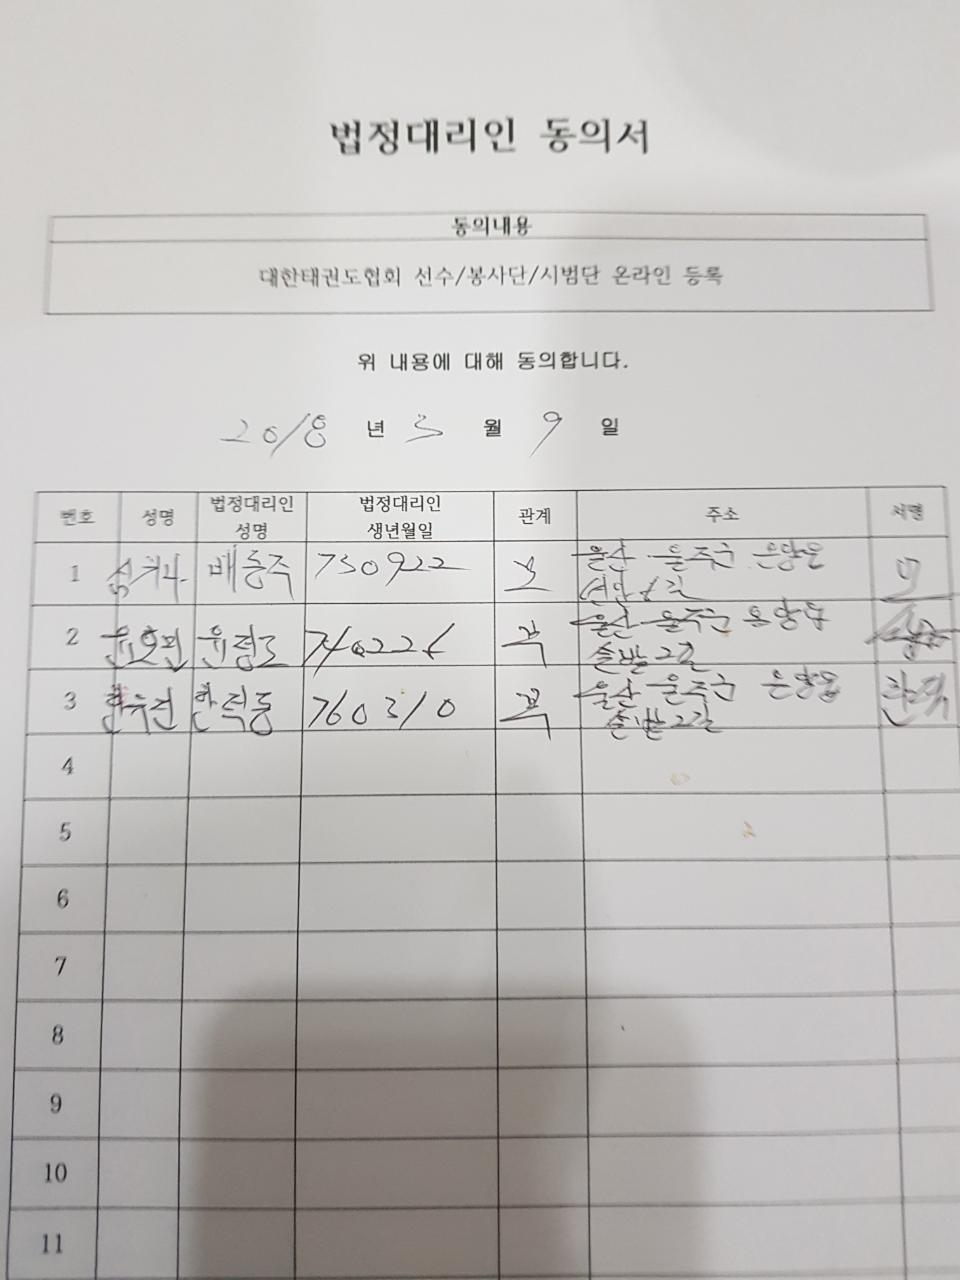 법정대리인 동의서
동의내용
대한태권도협회 선수/봉사단/시범단 온라인 등록
위 내용에 대해 동의합니다.
2018 년 3 월 9 일
번호 성명 법정대리인 성명 법정대리인 생년월일 관계 주소 서명
1 배종주 750922 모 울산 울주군 언양읍
2 740226 부 울산 울주군 언양읍
솔밭2길
3 한덕동 760310 부 울산 울주군 언양읍
솔밭2길
4
5
6
7
8
9
10
11